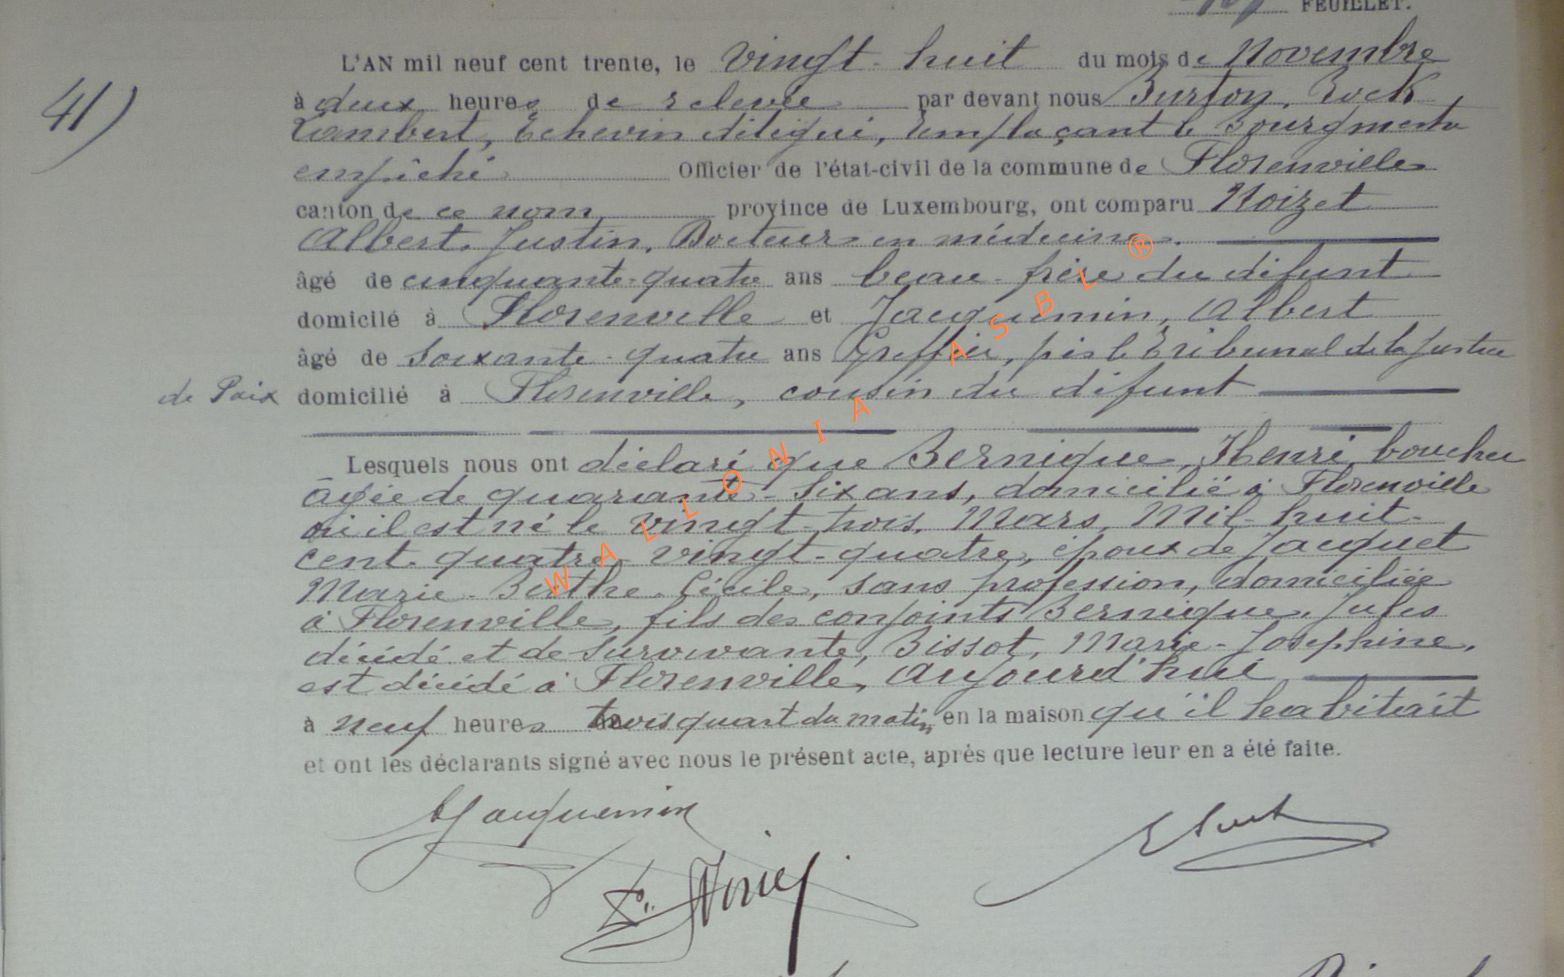 FEUILLET.
41)
L'AN mil neuf cent trente, le vingt-huit du mois de Novembre
à deux heures de relevée par devant nous Burton, Rock
Lambert, Echevin délégué, remplaçant le Bourgmestre
empêché Officier de l'état-civil de la commune de Florenville
canton de ce nom, province de Luxembourg, ont comparu Noizet
Albert, Justin, Docteur en médecine.
âgé de cinquante-quatre ans beau-frère du défunt
domicilé à Florenville et Jacquemin, Albert
âgé de soixante-quatre ans Greffier, près le Tribunal de la Justice
de Paix domicilié à Florenville, cousin du défunt
Lesquels nous ont déclaré que Bernique, Henri boucher
âgée de quarante-six ans, domicilié à Florenville
où il est né le vingt-trois, Mars, Mil-huit-
cent quatre vingt-quatre, époux de Jacquet
Marie-Berthe-Cécile, sans profession, domiciliée
à Florenville, fils des conjoints Bernique, Jules
décédé et de survivante, Bissot, Marie-Josephine,
est décédé à Florenville, aujourd'hui
à neuf heures trois quart du matin, en la maison qu'il habitait
et ont les déclarants signé avec nous le présent acte, après que lecture leur en a été faite.
AJacquemin
WALLONIA ASBL ®